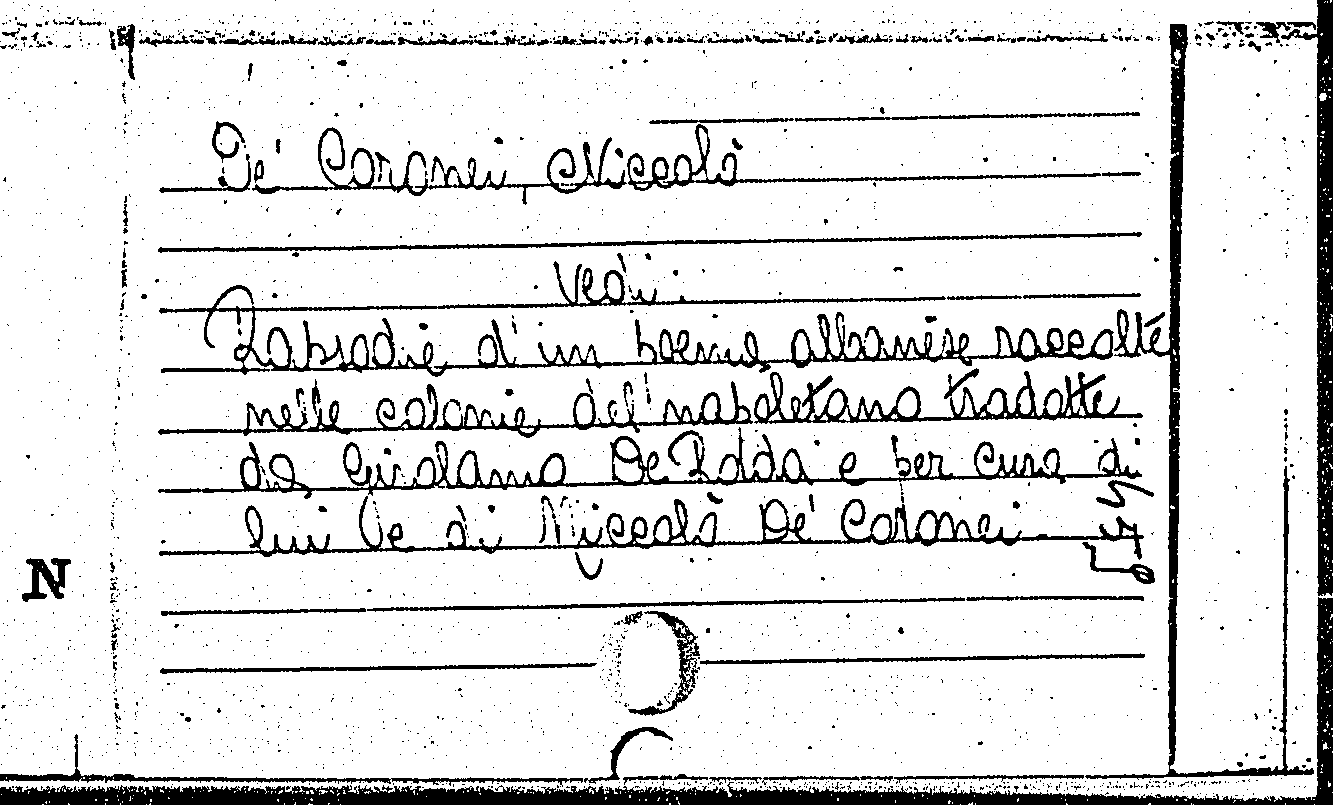 De' Coronei, Niccolò
Vedi:
Rapsodie d'un poema albanese raccolte
nelle colonie del napoletano tradotte
da Girolamo De Rada e per cura di
lui e di Niccolò De' Coronei.
N